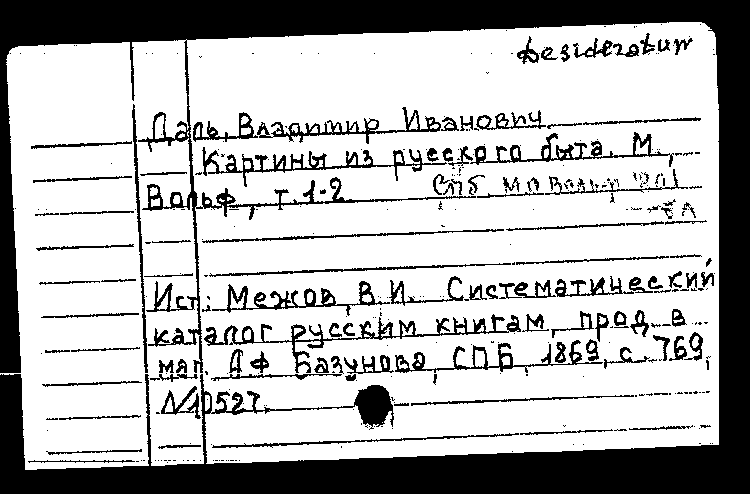 Desideratum
Даль, Владимир Иванович.
Картины из русского быта. М.,
Вольф, т. 1-2 СПб. М О Вольф
Ист.: Межов, В.И. Систематический
каталог русским книгам, прод. в
маг. А Ф Базунова, СПБ, 1869, с. 769,
N10527.